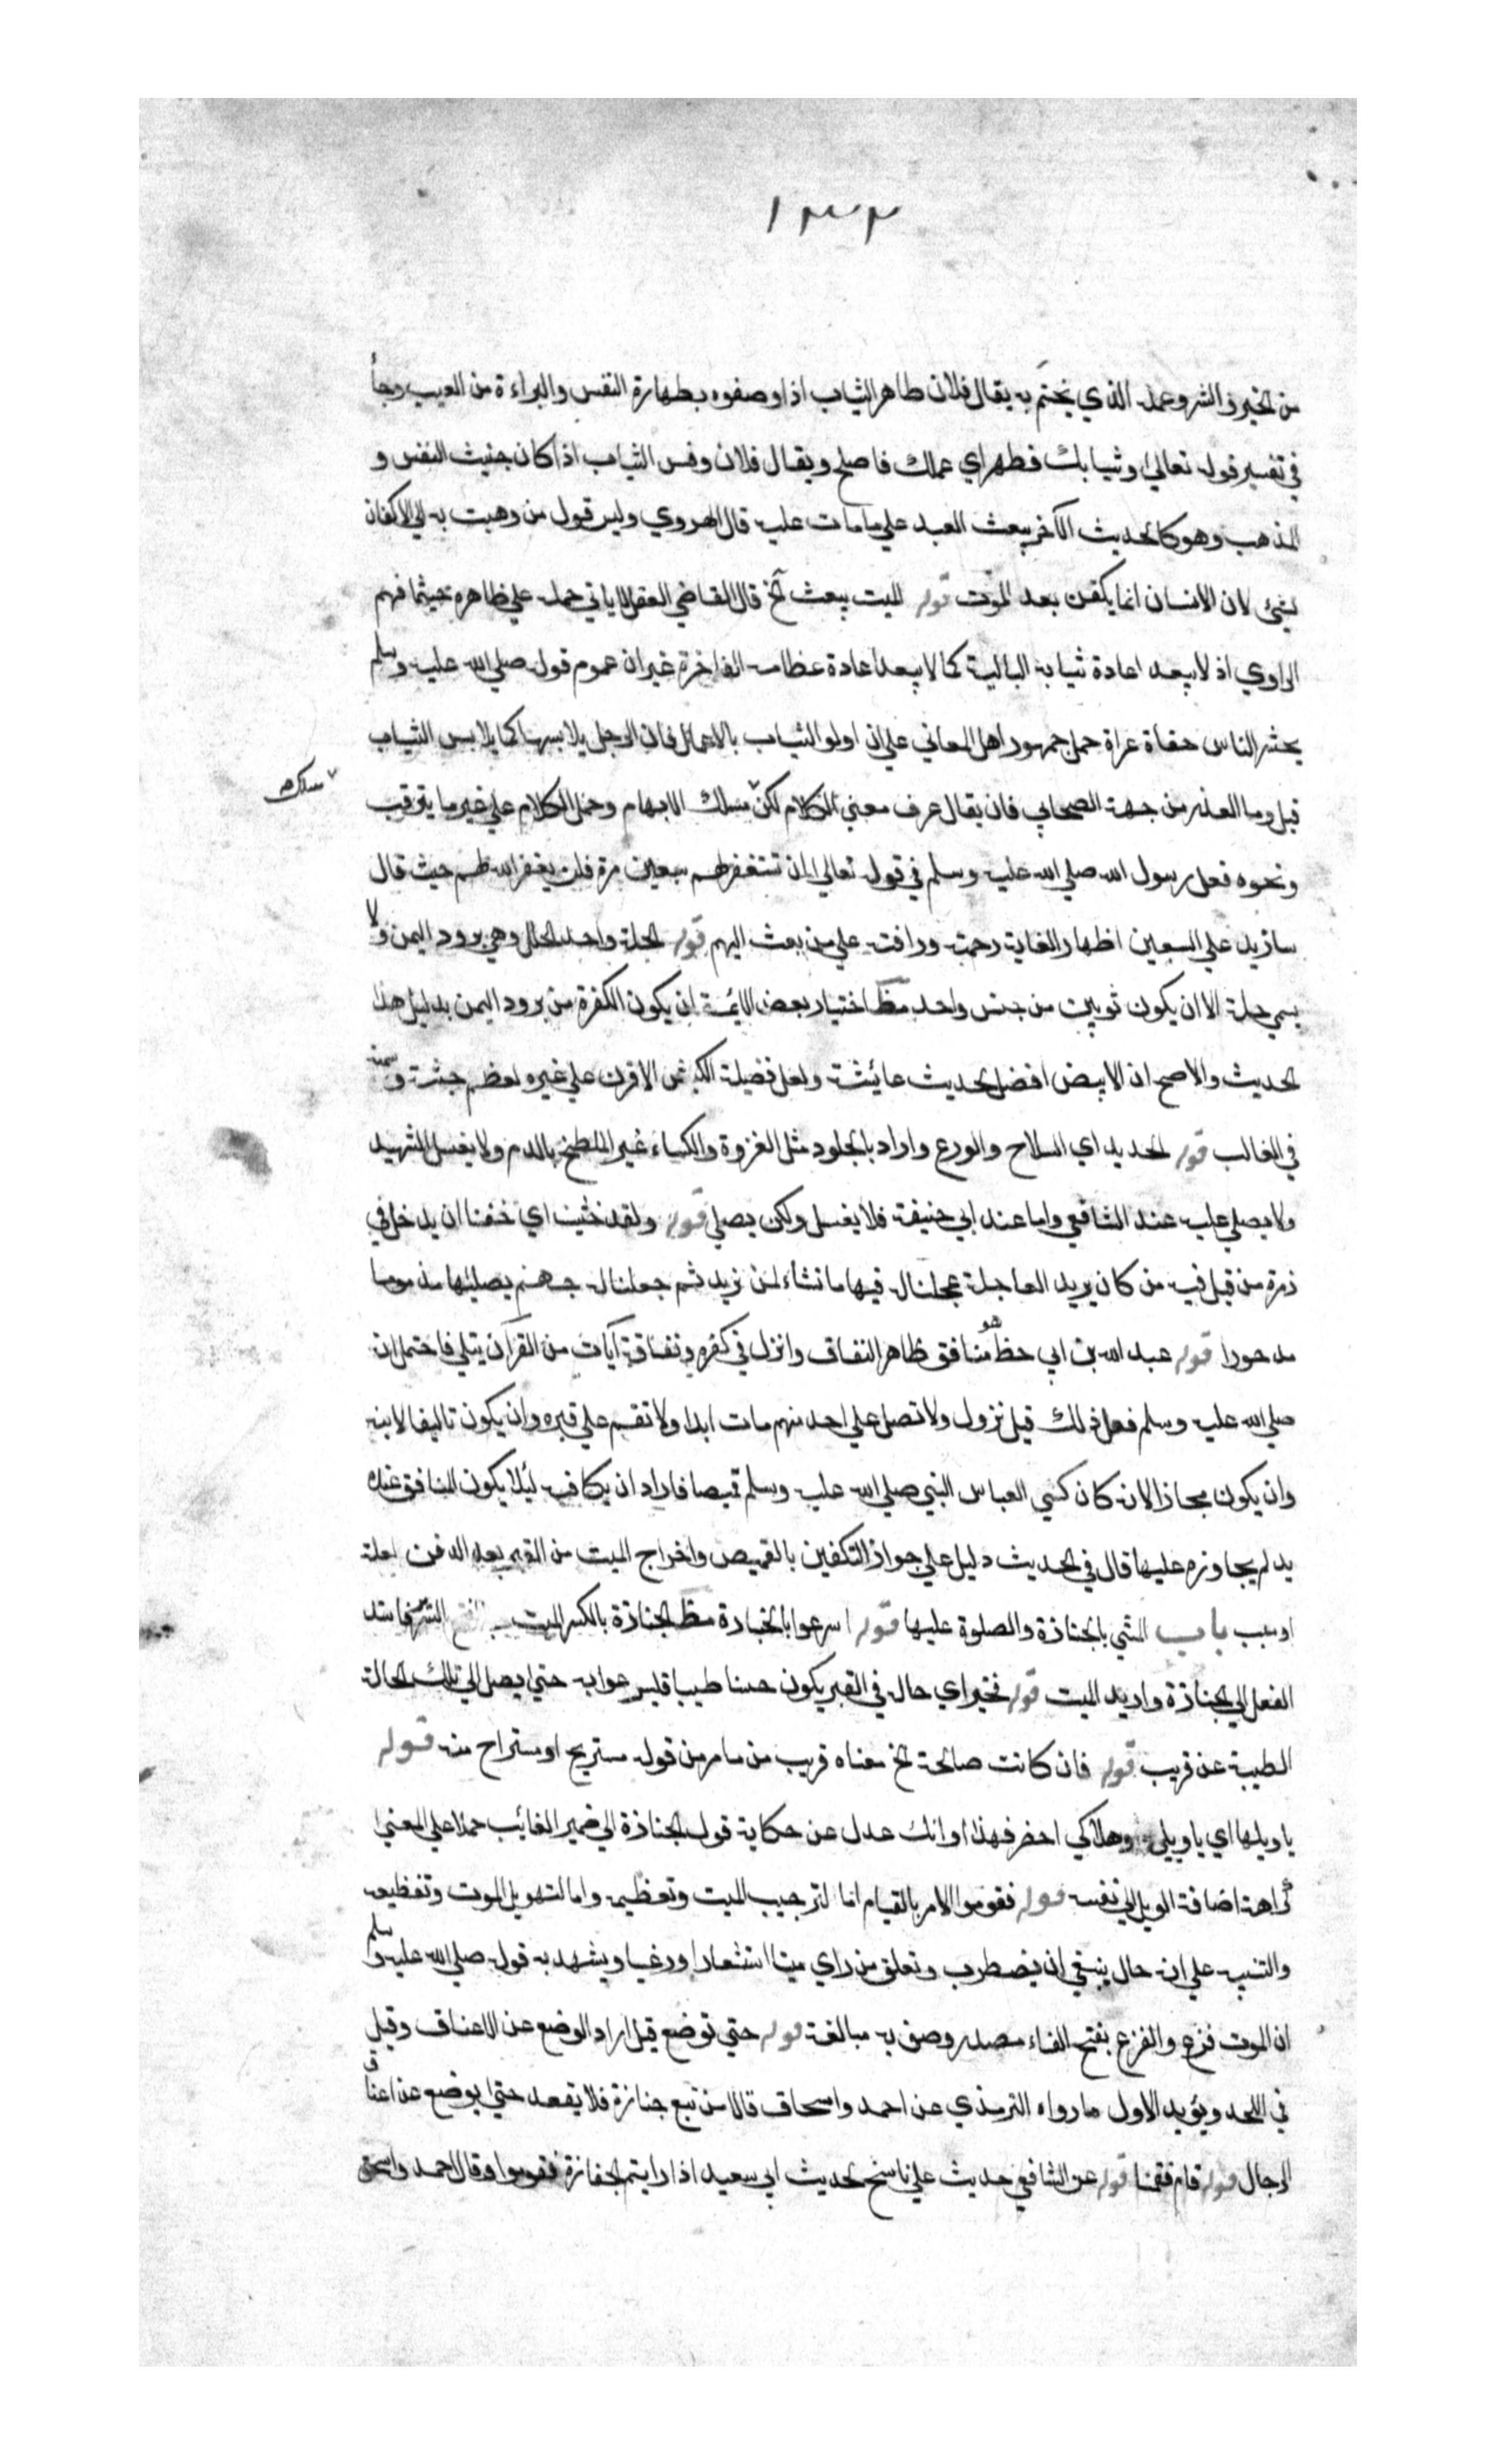 ١٣٣
من الخير والشر وعمله الذي يختم به يقال فلان طاهر الثياب اذا وصفوه بطهارة النفس والبراءة من العيب وجأ
في تفسير قوله تعالي وثيابك فطهر اي عملك فاصلح ويقال فلان دنس الثياب اذا كان خبيث النفس و
المذهب وهو كالحديث الآخر يبعث العبد علي ما مات عليه قال الهروي وليس قول من ذهبت به الي الاكفان
بشئ لان الانسان انما يكفن بعد الموت قوله الميت يبعث آلخ قال القاضي العقل لا يابي حمله علي ظاهره حيثما فهم
الراوي اذ لا يبعد اعادة ثيابه البالية كما لا يبعد اعادة عظامه الناخرة غير ان عموم قوله صلي الله عليه وسلم
يحشر الناس حفاة عراة حمل جمهور اهل المعاني علي ان اولو الثياب بالاعمال فان الرجل يلابسها كما يلابس الثياب
قيل وما العذر من جهة الصحابي فان يقال عرف معني الكلام لكن مسلك الابهام وحمل الكلام علي غير ما يترقب
سلك
ونحوه فعل رسول الله صلي الله عليه وسلم في قوله تعالي ان تستغفر لهم سبعين مرة فلن يغفر الله لهم حيث قال
سازيد علي السبعين اظهارا لغاية رحمته ورافته علي من بعث اليهم قوله الحلة واحد الحلل وهي برود اليمن ولا
يسمي حلة الا ان يكون ثوبين من جنس واحد مظ اختيار بعض الائمة ان يكون الكفن من برود اليمن بدليل هذا
الحديث والاصح ان الابيض افضل لحديث عائشة ولعل فضيلة الكبش الاقرن علي غيره لعظم جثته وسمنه
في الغالب قوله الحديد اي السلاح والدرع واراد بالجلود مثل الفروة والكساء غير الملطخ بالدم ولا يغسل الشهيد
ولا يصلي عليه عند الشافعي واما عند ابي حنيفة فلا يغسل ولكن يصلي قوله ولقد خشينا اي خفنا ان يدخل في
زمرة من قيل فيه من كان يريد العاجلة عجلنا له فيها ما نشاء لمن نريد ثم جعلنا له جهنم يصليها مذموما
مدحورا قوله عبد الله بن ابي حظ هو منافق ظاهر النفاق وانزل في كفره ونفاقه آيات من القرآن يتلي فاحتمل انه
صلي الله عليه وسلم فعل ذلك قبل نزول ولا تصل علي احد منهم مات ابدا ولا تقم علي قبره وان يكون تاليفا لابنه
وان يكون مجازا لانه كان كسي العباس النبي صلي الله عليه وسلم قميصا فاراد ان يكافيه ليلا يكون للمنافق عنده
يد لم يجاوزه عليها قال في الحديث دليل علي جواز التكفين بالقميص واخراج الميت من القبر بعد الدفن لعلة
او سبب باب المشي بالجنازة والصلوة عليها قوله اسرعوا بالجنازة مظ الجنازة بالكسر الميت
الفعل الي الجنازة واريد الميت قوله فخير اي حاله في القبر يكون حسنا طيبا حتي يصل الي تلك الحالة
الطيبة عن قريب قوله فان كانت صالحة الخ معناه قريب من ما مر من قوله مستريح او مستراح منه قوله
يا ويلها اي يا ويلي وهلاكي احضر فهذا اوانك عدل عن حكاية قول الجنازة الي ضمير الغائب حملا علي المعني
كراهة اضافة الويل الي نفسه قوله فقوموا الامر بالقيام اما لترحيب الميت وتعظيمه واما لتهويل الموت وتفظيعه
والتنبيه علي انه حال ينبغي ان يضطرب وتعلق من راي ميتا استشعارا ورعبا ويشهد به قوله صلي الله عليه وسلم
ان الموت فزع والفزع بفتح الفاء مصدر وصف به مبالغة قوله حتي توضع قيل اراد الوضع عن الاعناق وقيل
في اللحد ويؤيد الاول ما رواه الترمذي عن احمد واسحاق قالا من تبع جنازة فلا يقعد حتي يوضع عن اعناق
الرجال قوله قام فقمنا قوله عن الشافعي حديث علي ناسخ لحديث ابي سعيد اذا رايتم الجنازة فقوموا وقال احمد واسحق